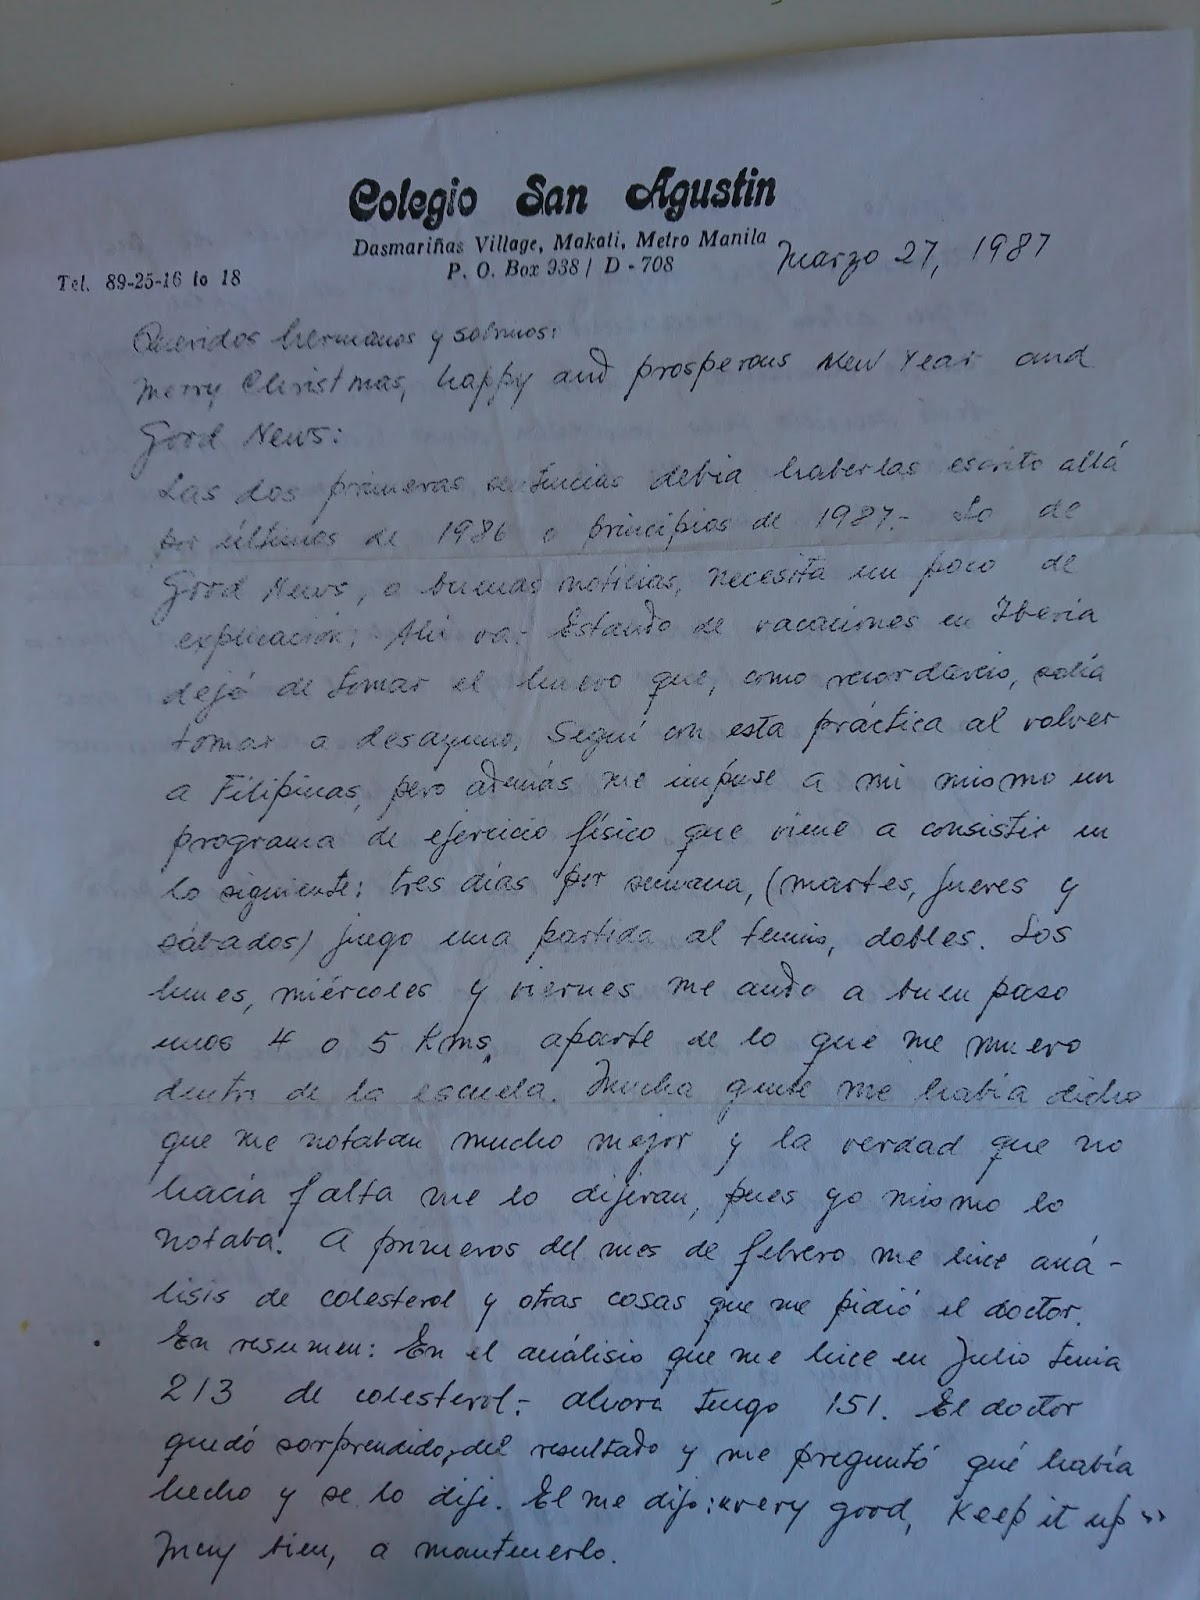 Colegio San Agustin
Dasmariñas Village, Makati, Metro Manila
P. O. Box 938 / D - 708
Tel. 89-25-16 to 18
Marzo 27, 1987
Queridos hermanos y sobrinos:
Merry Christmas, happy and prosperous New Year and
Good News:
Las dos primeras sentencias debia haberlas escrito allá
por últimos de 1986 o principios de 1987.- Lo de
Good News, o buenas noticias, necesita un poco de
explicación; Ahi va.- Estando de vacaciones en Iberia
dejé de tomar el huevo que, como recordareis, solia
tomar a desayuno. Segui con esta práctica al volver
a Filipinas, pero además me impuse a mi mismo un
programa de ejercicio físico que viene a consistir en
lo siguiente: tres dias por semana, (martes, jueves y
sábados) juego una partida al tennis, dobles. Los
lunes, miércoles y viernes me ando a buen paso
unos 4 o 5 Kms, aparte de lo que me muevo
dentro de la escuela. Mucha gente me habia dicho
que me notaban mucho mejor y la verdad que no
hacía falta me lo dijeran, pues yo mismo lo
notaba. A primeros del mes de febrero me hice aná-
lisis de colesterol y otras cosas que me pidió el doctor.
En resumen: En el análisis que me hice en Julio tenia
213 de colesterol.- ahora tengo 151. El doctor
quedó sorprendido del resultado y me preguntó qué había
hecho y se lo dije. El me dijo: "very good, Keep it up"
Muy bien, a mantenerlo.